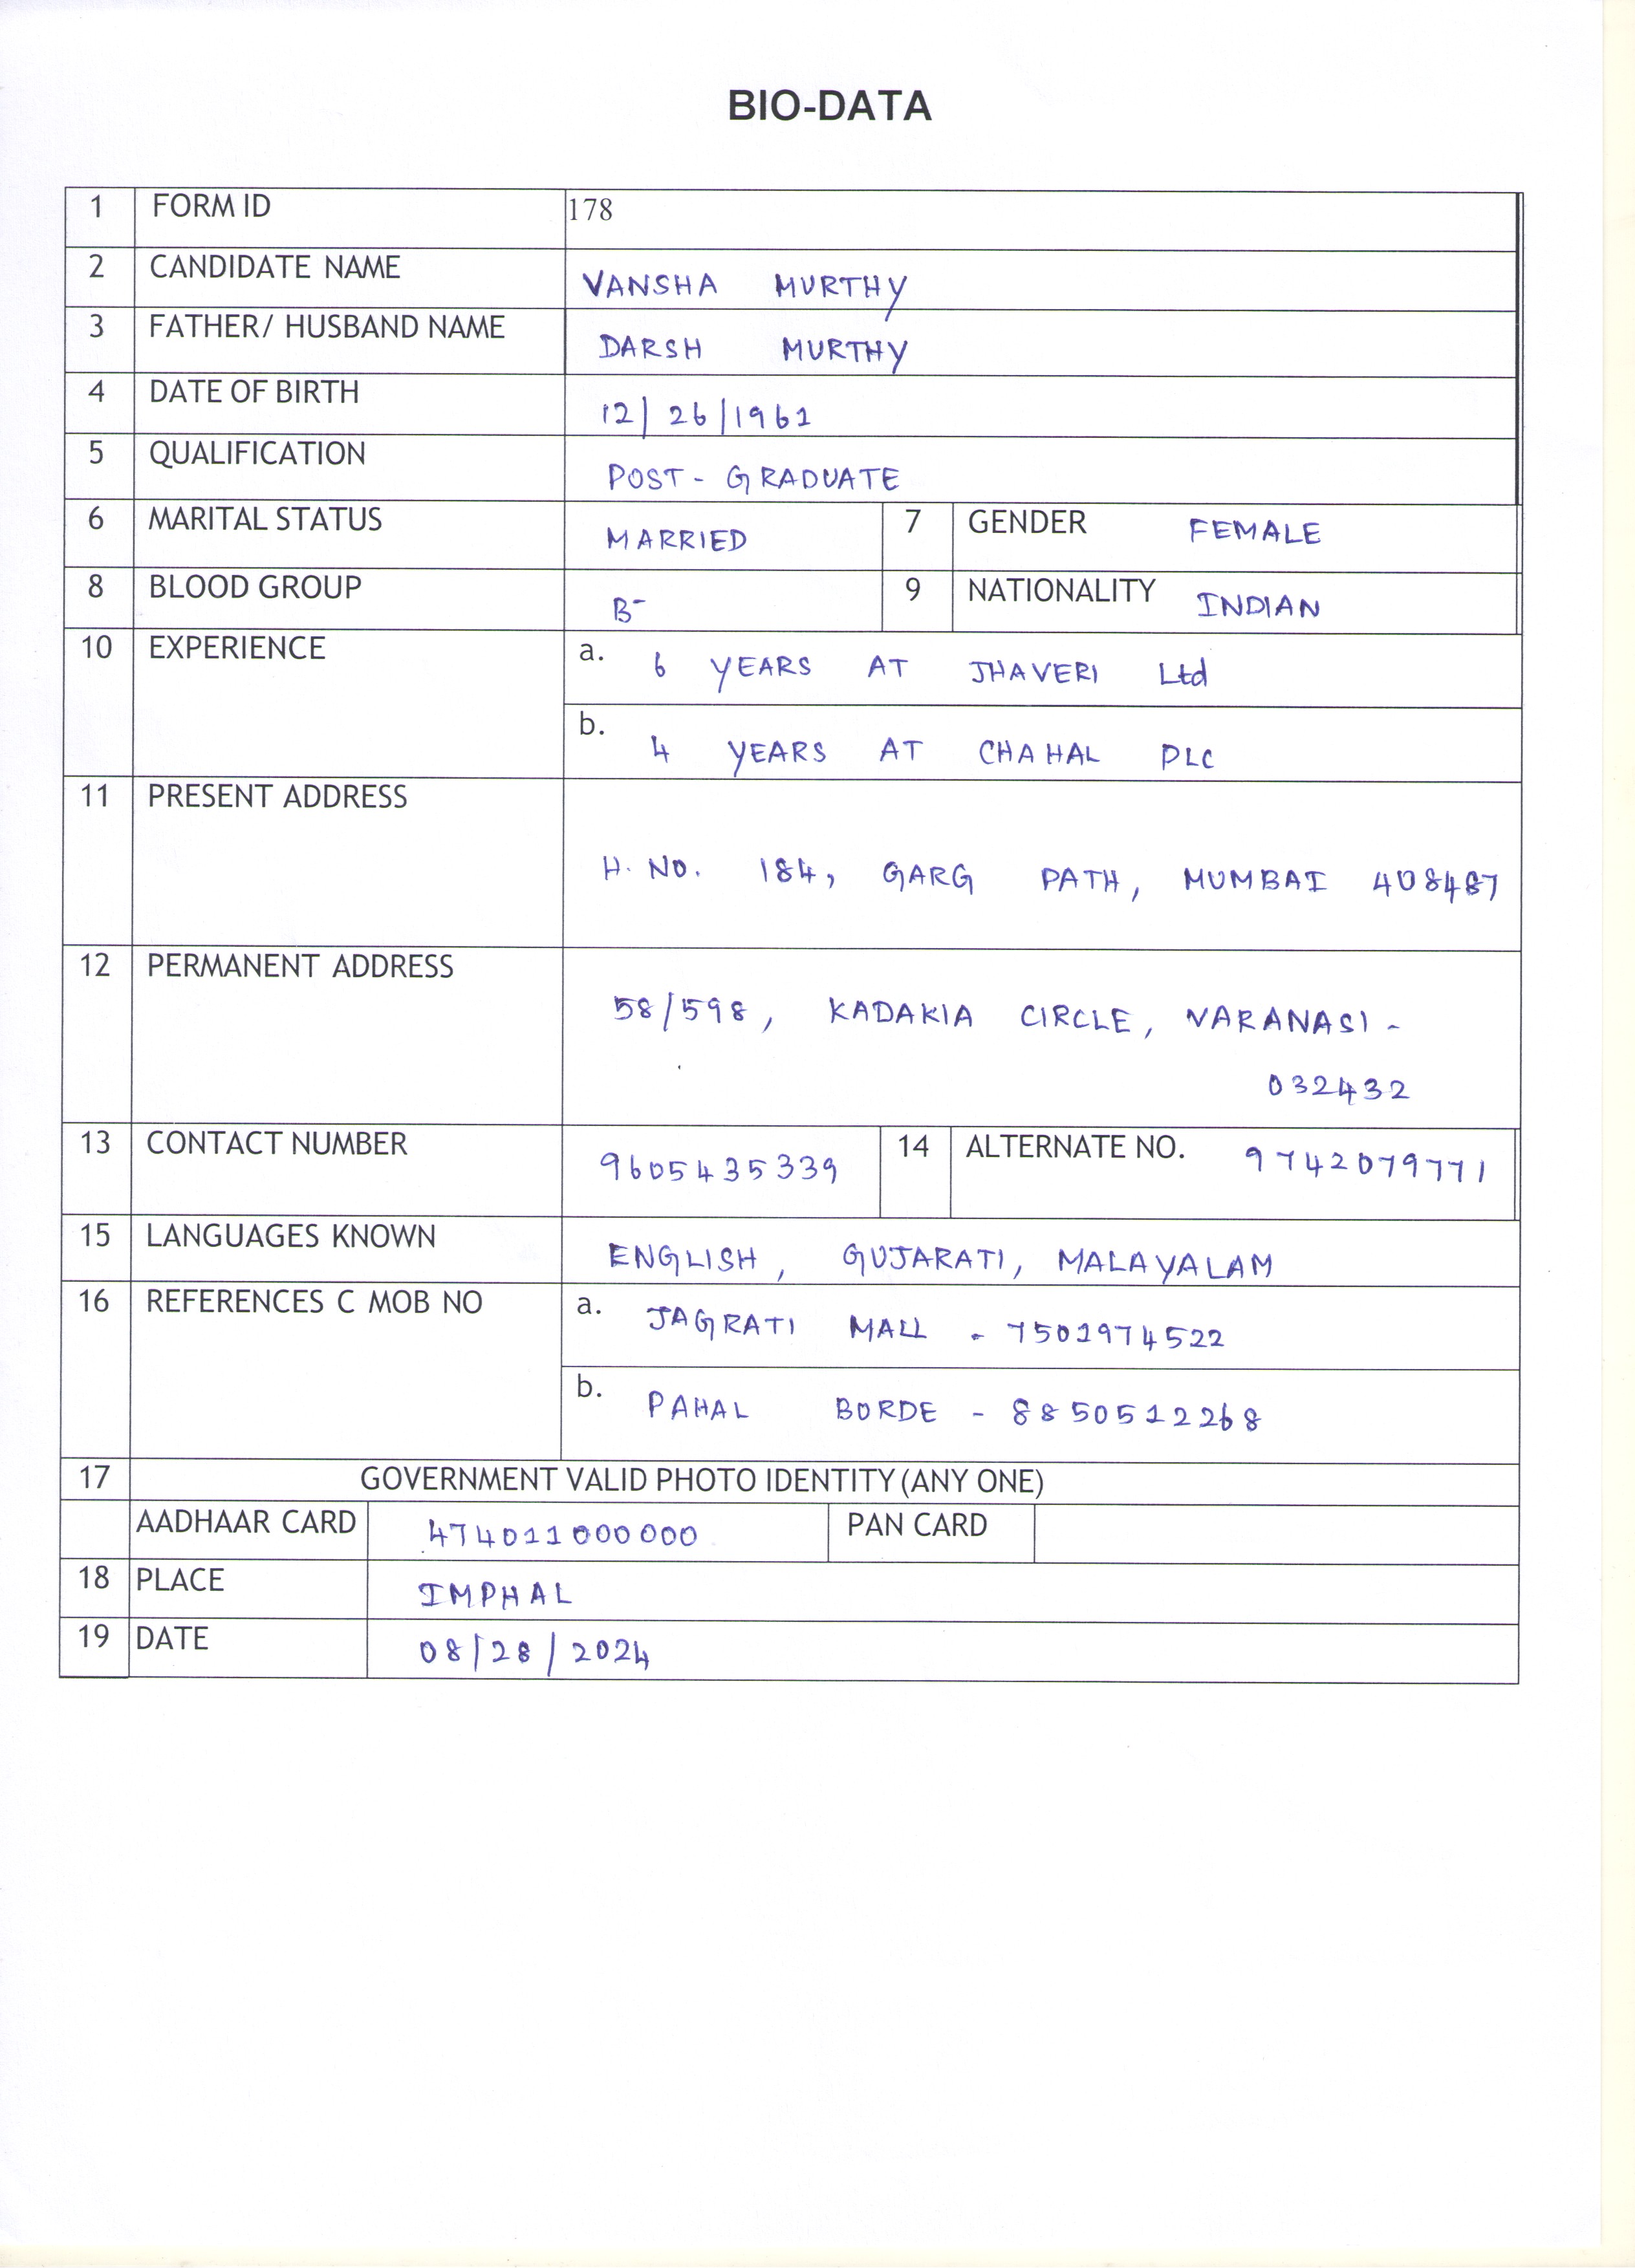 BIO-DATA
1 FORM ID 178
2 CANDIDATE NAME VANSHA MURTHY
3 FATHER/ HUSBAND NAME DARSH MURTHY
4 DATE OF BIRTH 12/26/1961
5 QUALIFICATION POST-GRADUATE
6 MARITAL STATUS MARRIED 7 GENDER FEMALE
8 BLOOD GROUP B- 9 NATIONALITY INDIAN
10 EXPERIENCE a. 6 YEARS AT JHAVERI Ltd
b. 4 YEARS AT CHAHAL PLC
11 PRESENT ADDRESS
H. NO. 184, GARG PATH, MUMBAI 408487
12 PERMANENT ADDRESS
58/598, KADAKIA CIRCLE, VARANASI -
032432
13 CONTACT NUMBER 9605435339 14 ALTERNATE NO. 9742079771
15 LANGUAGES KNOWN ENGLISH, GUJARATI, MALAYALAM
16 REFERENCES C MOB NO a. JAGRATI MALL - 7501974522
b. PAHAL BORDE - 8850512268
17 GOVERNMENT VALID PHOTO IDENTITY (ANY ONE)
AADHAAR CARD 474011000000 PAN CARD
18 PLACE IMPHAL
19 DATE 08/28/2024